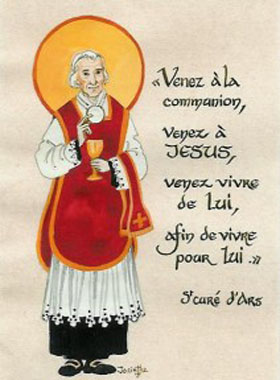 «Venez à la
communion,
venez à
JESUS,
venez vivre
de Lui,
afin de vivre
pour Lui.»
St curé d'Ars